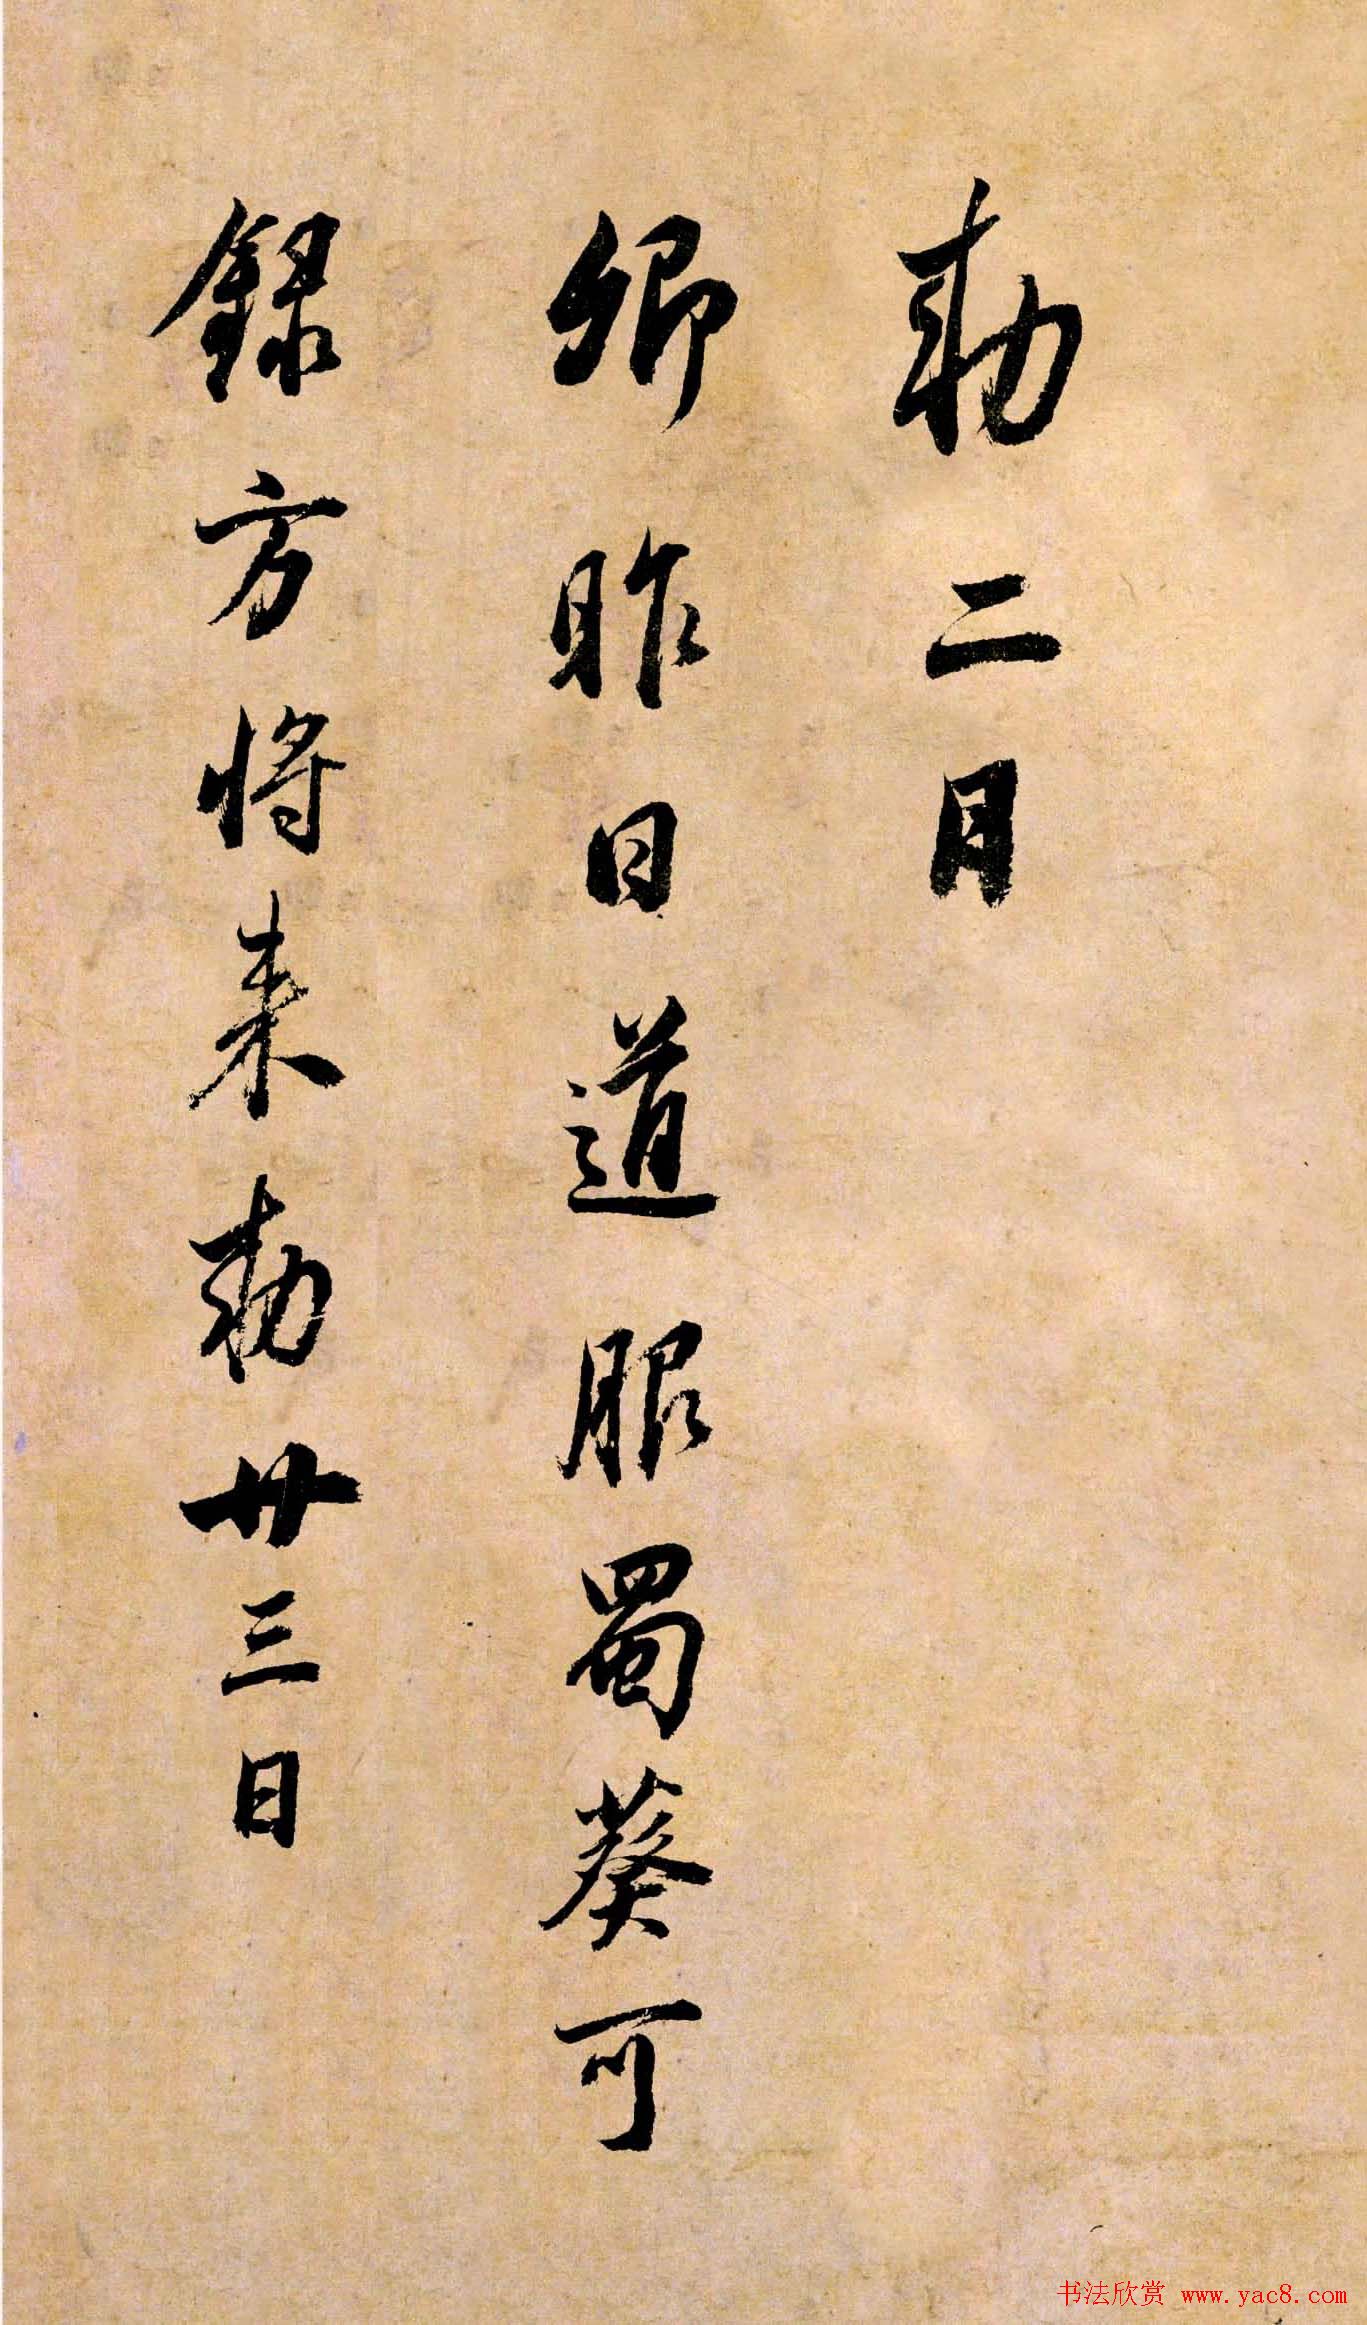 勅二月
卿昨日道服蜀葵可
録方将来勅廿三日
书法欣赏 www.yac8.com